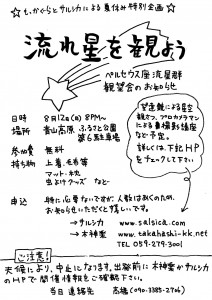 ☆ t.からくとサルシカによる夏休み特別企画 ☆
流れ星を観よう
ペルセウス座流星群
観望会のお知らせ
日時 8月12日(日) 8PM〜
場所 青山高原 ふるさと公園
第6駐車場
参加費 無料
持ち物 上着、毛布等
マット・やぶ
虫よけグッズ など〜
望遠鏡による星空
観察、プロカメラマン
による星撮影講座
など予定。
詳しくは、下記HP
をチェック下さい
申込 特に必要ないですが、人数はあくのため、
お知らせいただくと嬉しいです。
→サルシカ www.salsica.com
→木神楽 www.takahashi-kk.net
TEL 059-279-3001
ご注意!
天候により、中止になります。出発前に木神楽かサルシカ
のHPで開催情報をご確認下さい。
当日連絡先 高橋(090-3385-2706)